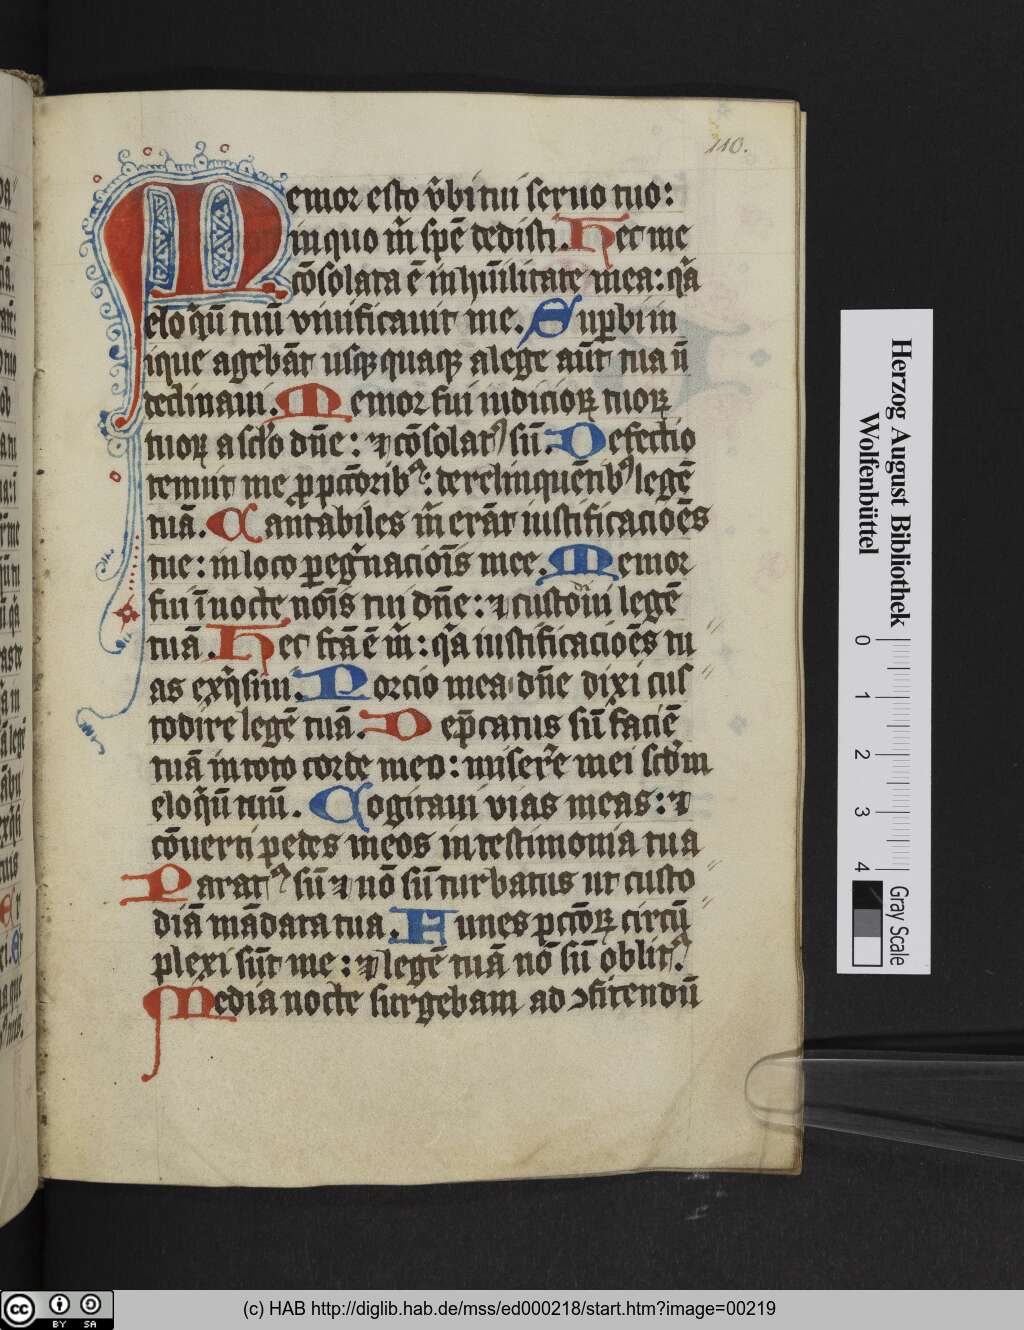 110.
Memor esto v̄bi tui seruo tuo:
in quo m̄ spē dedisti. Hec me
cōsolata ē in hūilitate mea: q̄a
eloq̄ūi tuū viuificauit me. Supbi in
ique agebāt usqꝫ quaqꝫ a lege aūt tua ū
declinaui. Memor fui iudicioꝝ tuoꝝ
tuoꝝ a sclo dn̄e: ⁊ cōsolatꝰ sū. Defectio
tenuit me ꝓ pctōribꝰ: derelinquētibꝰ legē
tuā. Cantabiles m̄ erāt iustificacioēs
tue: in loco pegͥnacioīs mee. Memor
fui ī nocte noīs tui dn̄e: ⁊ custodiui legē
tuā. Hec fcā ē m̄: q̄a iustificacioēs tu
as exq̄siui. Porcio mea dn̄e dixi cus
todire legē tuā. Dep̄catus sū faciē
tuā in toto corde meo: miserēe mei scdm
eloq̄ūi tuū. Cogitaui vias meas: ⁊
cōuerti pedes meos in testimonia tua
Paratꝰ sū ⁊ nō sū turbatus ut custo
diā mādata tua. Funes pctōꝝ circū
plexi sūt me: ⁊ legē tuā nō sū oblitꝰ.
Media nocte surgebam ad ↄfitendū
Herzog August Bibliothek
Wolfenbüttel
0 1 2 3 4
Gray Scale
cc BY SA
(c) HAB http://diglib.hab.de/mss/ed000218/start.htm?image=00219